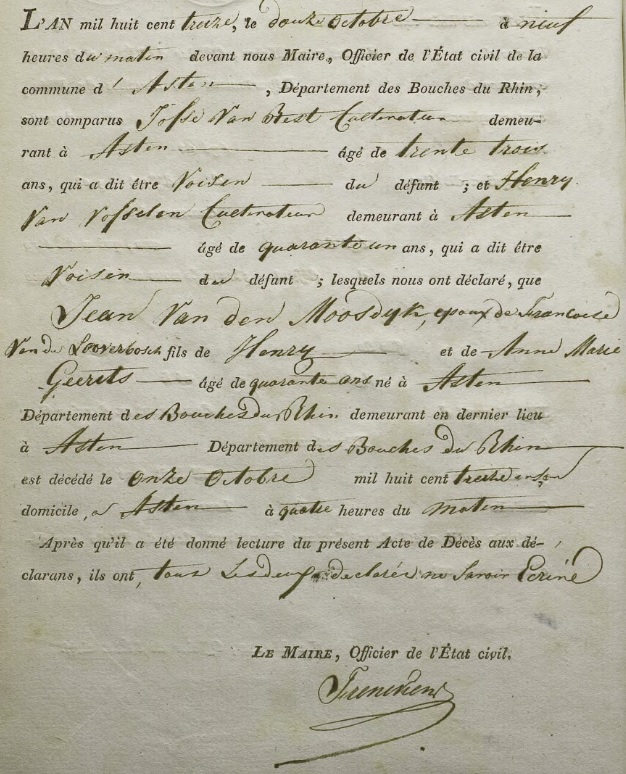 L'AN mil huit cent treize, le douze octobre à neuf
heures du matin devant nous Maire, Officier de l'État civil de la
commune d' Asten , Département des Bouches du Rhin,
sont comparus Josse Van Best Cultivateur demeu-
rant à Asten âgé de trente trois
ans, qui a dit être Voisin du défunt ; et Henry
Van Vosselen Cultivateur demeurant à Asten
âgé de quarante un ans, qui a dit être
Voisin du défunt ; lesquels nous ont déclaré, que
Jean Van den Moosdyk, epoux de Francoise
Van de Looverbosch fils de Henry et de Anne Marie
Geerits âgé de quarante ans né à Asten
Département des Bouches Du Rhin demeurant en dernier lieu
à Asten Département des Bouches Du Rhin
est décédé le onze octobre mil huit cent treize en son
domicile, à Asten à quatre heures du matin
Après qu'il a été donné lecture du présent Acte de Décès aux dé-
clarans, ils ont, tous Les deux declaré ne Savoir Ecrire
LE MAIRE, Officier de l'État civil.